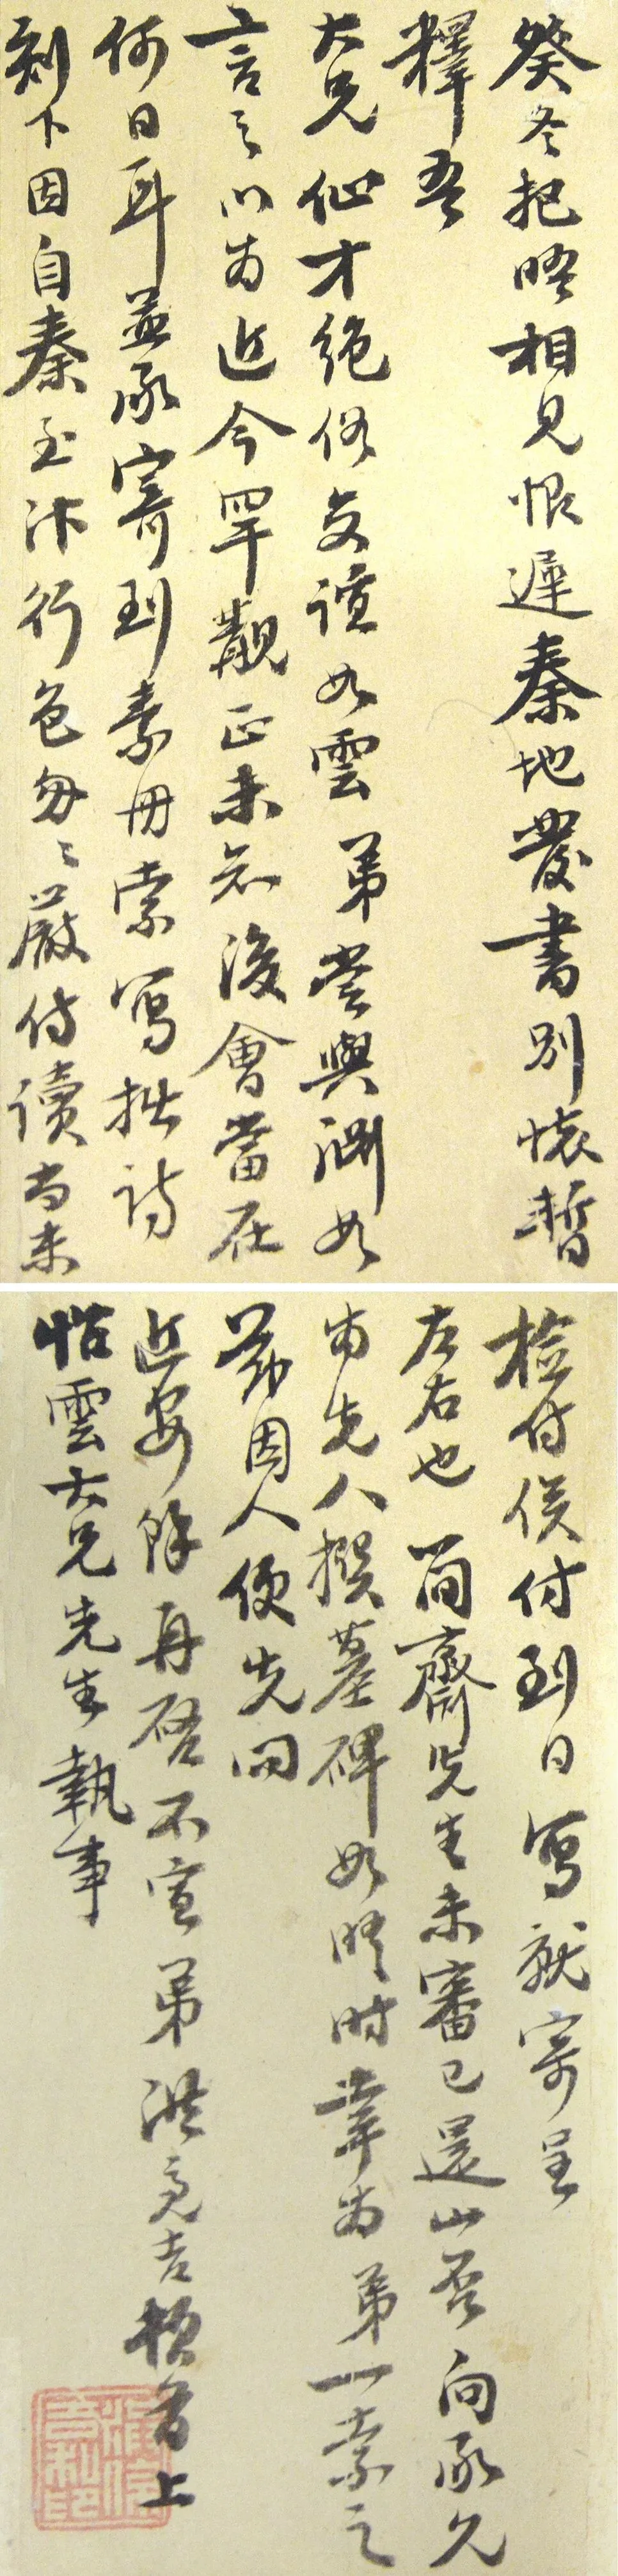 癸冬把晤相見恨遲秦地發書別懷暫
釋吾
大兄仙才絕俗交誼如雲弟嘗與淵如
言之以為近今罕覯正未知後會當在
何日耳並承寄到素冊索寫拙詩
刻下因自秦至汴行色匆匆嚴侍讀尚未
檢付俟付到日寫就寄呈
左右也簡齋先生未審已還山否向承久
為先人撰墓碑如晤時幸為弟一索之
茲因人便先問
近安餘再啟不宣弟洪亮吉頓首上
怡雲大兄先生執事